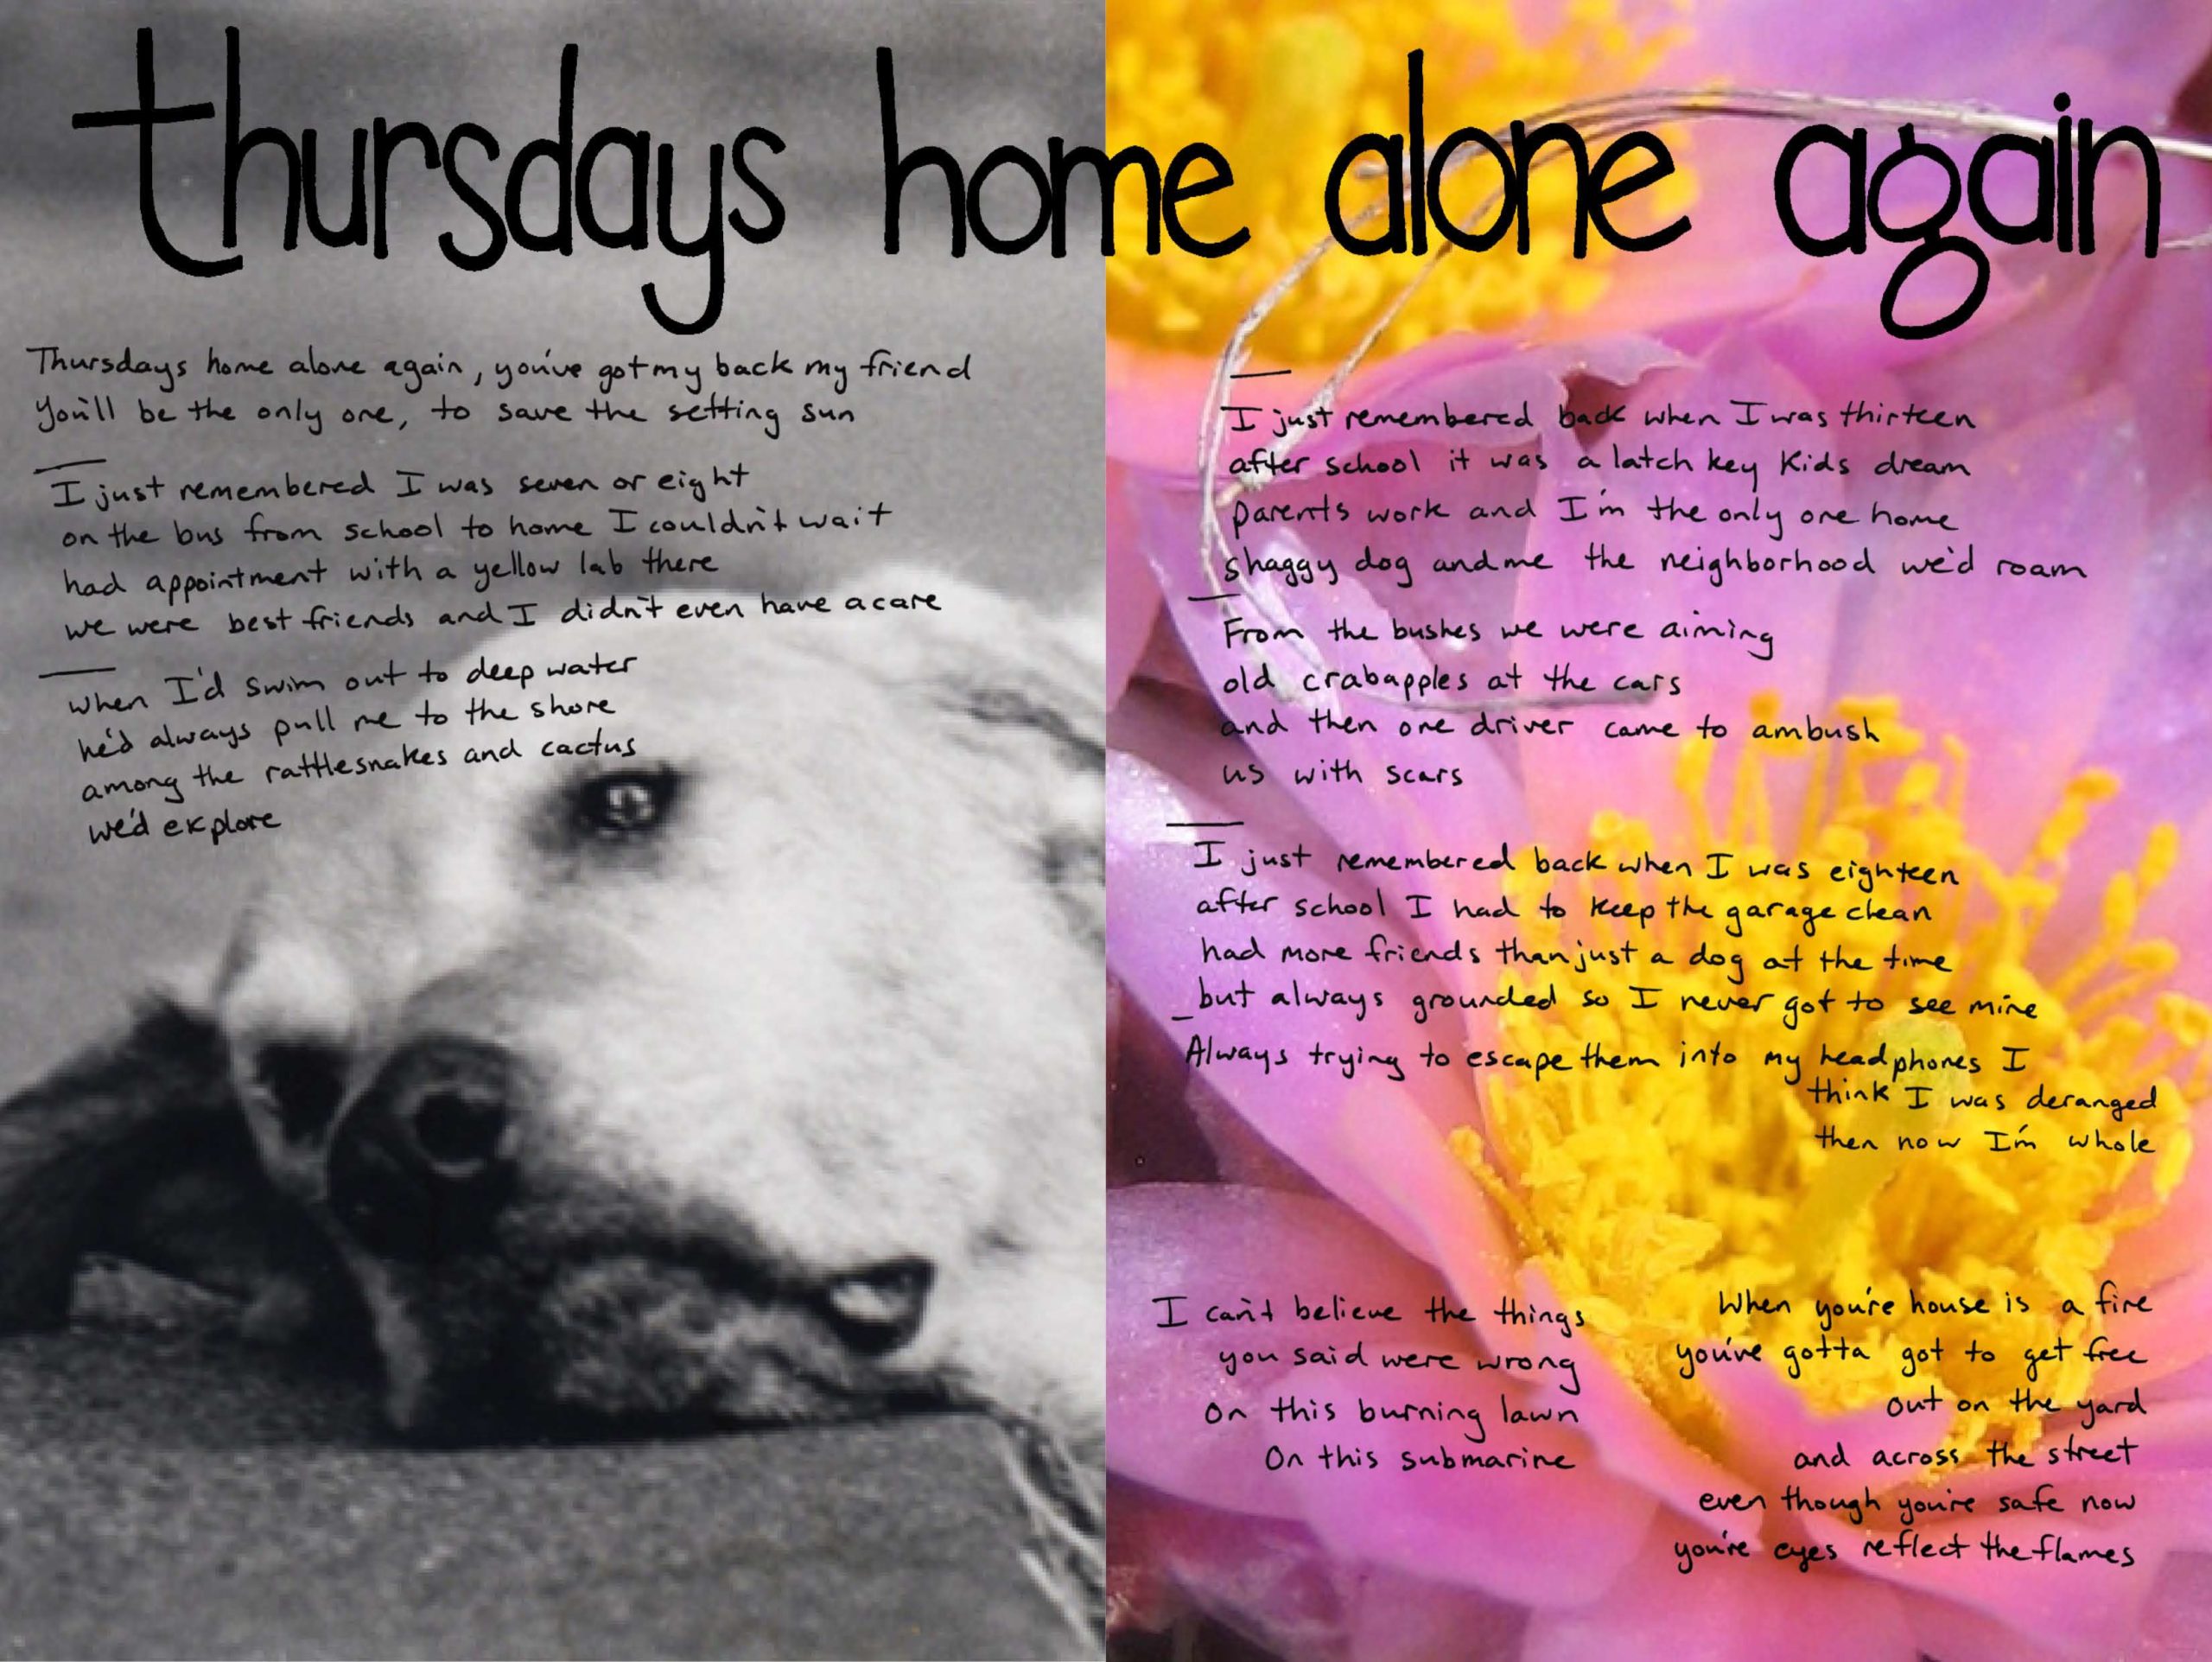 thursdays home alone again
Thursdays home alone again, you've got my back my friend
You'll be the only one, to save the setting sun
I just remembered I was seven or eight
on the bus from school to home I couldn't wait
had appointment with a yellow lab there
we were best friends and I didn't even have a care
when I'd swim out to deep water
he'd always pull me to the shore
among the rattlesnakes and cactus
we'd explore
I just remembered back when I was thirteen
after school it was a latch key kids dream
parents work and I'm the only one home
shaggy dog and me the neighborhood we'd roam
From the bushes we were aiming
old crabapples at the cars
and then one driver came to ambush
us with scars
I just remembered back when I was eighteen
after school I had to keep the garage clean
had more friends than just a dog at the time
but always grounded so I never got to see mine
Always trying to escape them into my headphones I
think I was deranged
then now I'm whole
I can't believe the things
you said were wrong
On this burning lawn
On this submarine
When you're house is a fire
you've gotta got to get free
out on the yard
and across the street
even though you're safe now
you're eyes reflect the flames